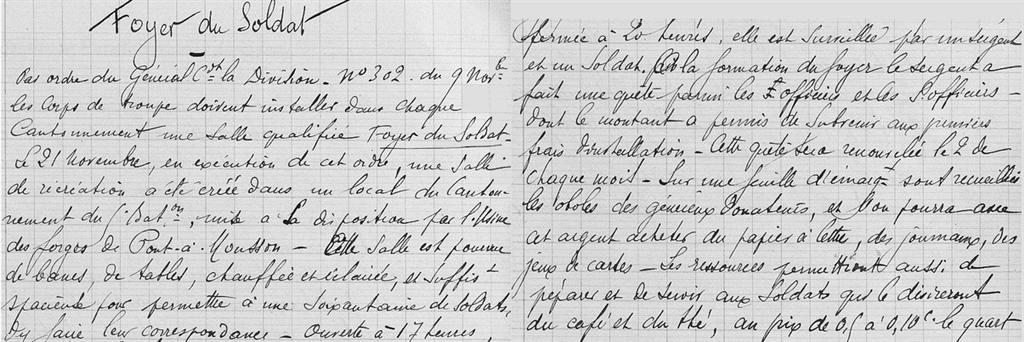 Foyer du Soldat
Par ordre du Général Cdt la Division - N° 302 - du 9 Novbre
les Corps de troupe doivent installer dans chaque
Cantonnement une salle qualifiée Foyer du Soldat -
Le 21 Novembre, en exécution de cet ordre, une Salle
de récréation a été créée dans un local du Canton-
nement du Bat on, mise à la disposition par l'Usine
des forges de Pont-à-Mousson - Cette Salle est pourvue
de bancs, de tables, chauffée et éclairée, et suffist
spacieuse pour permettre à une Soixantaine de Soldats,
d'y faire leur correspondance - Ouverte à 17 heures,
fermée à 20 heures, elle est Surveillée par un Sergent
et un Soldat. la formation du foyer le Sergent a
fait une quête parmi les officiers et les S.officiers -
dont le montant a permis de Subvenir aux premiers
frais d'installation - Cette quête sera renouvelée le 2 de
chaque mois - Sur une feuille d'émargt sont recueillies
les oboles des généreux Donateurs, et l'on pourra avec
cet argent acheter du papier à lettre, des journaux, des
jeux de cartes - Les ressources permettront aussi de
préparer et de servir aux Soldats qui le désireront
du café et du thé, au prix de 0,5 à 0,10c. le quart